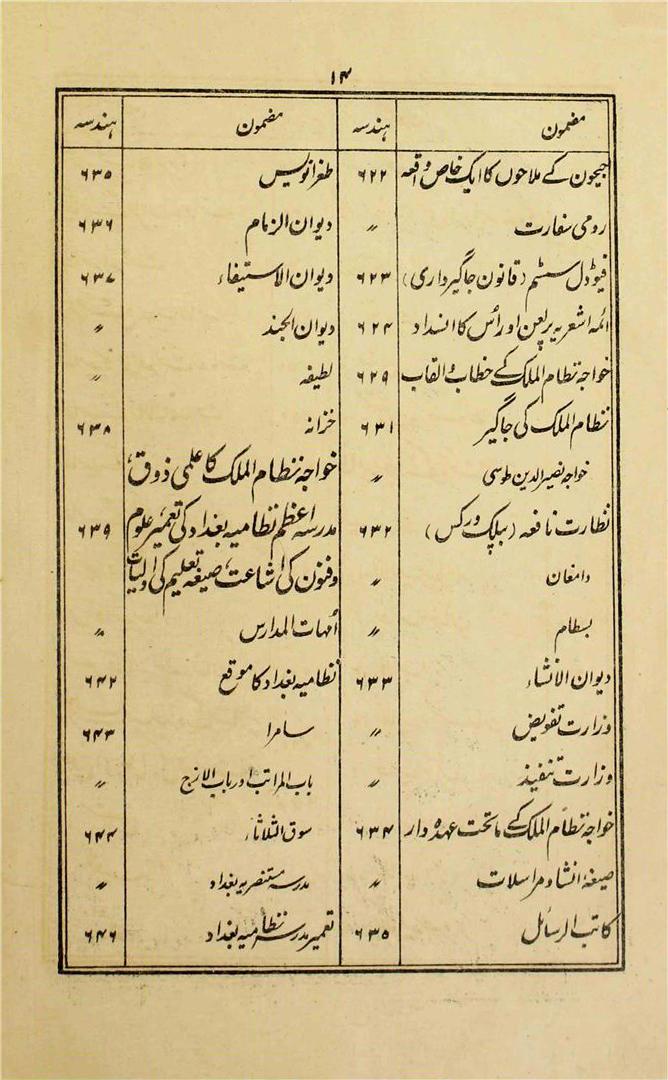 ۱۴
مضمون ہندسہ مضمون ہندسہ
جیحون کے ملاحوں کا ایک خاص واقعہ ۶۲۲
رومی سفارت ״
فیوڈل سسٹم (قانون جاگیرداری) ۶۲۳
ائمہ اشعریہ پر لعن اور اُس کا انسداد ۶۲۴
خواجہ نظام الملک کے خطاب والقاب ۶۲۹
نظام الملک کی جاگیر ۶۳۱
خواجہ نصیر الدین طوسی ״
نظارت نافعہ (پبلک ورکس) ۶۳۲
دامغان ״
بسطام ״
دیوان الانشاء ۶۳۳
وزارت تفویض ״
وزارت تنفیذ ״
خواجہ نظام الملک کے ماتحت عہدہ دار ۶۳۴
صیغۂ انشاء و مراسلات ״
کاتب الرسائل ۶۳۵
طغرانویس ۶۳۵
دیوان الزمام ۶۳۶
دیوان الاستیفاء ۶۳۷
دیوان الجند ״
لطیفہ ״
خزانہ ۶۳۸
خواجہ نظام الملک کا علمی ذوق،
مدرسہ اعظم نظامیہ بغداد کی تعمیر، علوم ۶۳۹
و فنون کی اشاعت، صیغہ تعلیم کی اولیات
اُمہات المدارس ״
نظامیہ بغداد کا موقع ۶۴۲
سامرا ۶۴۳
باب المراتب اور باب الازج ״
سوق الثلاثاء ۶۴۴
مدرسہ مستنصریہ بغداد ״
تعمیر مدرسہ نظامیہ بغداد ۶۴۶